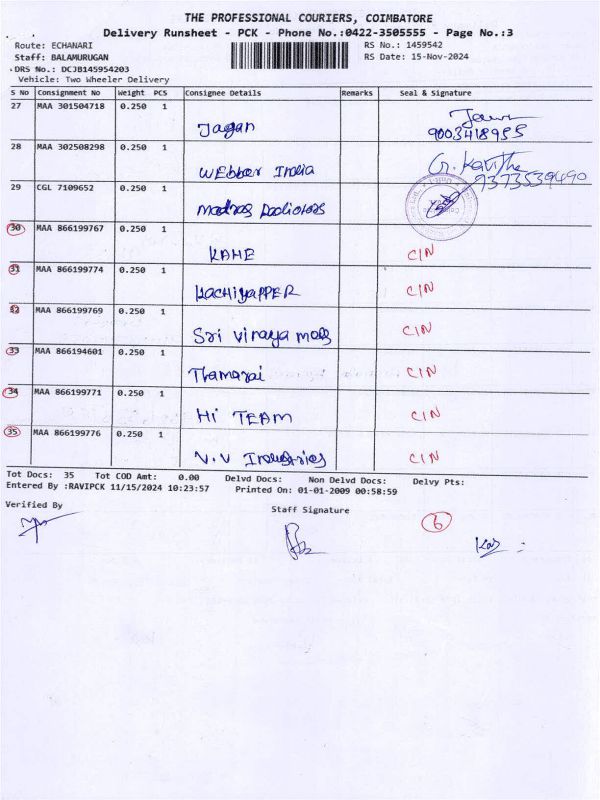 THE PROFESSIONAL COURIERS, COIMBATORE
Delivery Runsheet - PCK - Phone No.:0422-3505555 - Page No.:3
Route: ECHANARI RS No.: 1459542
Staff: BALAMURUGAN RS Date: 15-Nov-2024
DRS No.: DCJB145954203
Vehicle: Two Wheeler Delivery
S No Consignment No Weight PCS Consignee Details Remarks Seal & Signature
27 MAA 301504718 0.250 1
Jagan 9003418955
28 MAA 302508298 0.250 1
Webber India 9373539490
29 CGL 7109652 0.250 1
Madras
30 MAA 866199767 0.250 1
KAHE CIN
31 MAA 866199774 0.250 1
KACHIYAPPER CIN
32 MAA 866199769 0.250 1
Sri Vinaya CIN
33 MAA 866194601 0.250 1
Thamarai CIN
34 MAA 866199771 0.250 1
Hi TEAM CIN
35 MAA 866199776 0.250 1
V.V Industries CIN
Tot Docs: 35 Tot COD Amt: 0.00 Delvd Docs: Non Delvd Docs: Delvy Pts:
Entered By :RAVIPCK 11/15/2024 10:23:57 Printed On: 01-01-2009 00:58:59
Verified By
Staff Signature
6